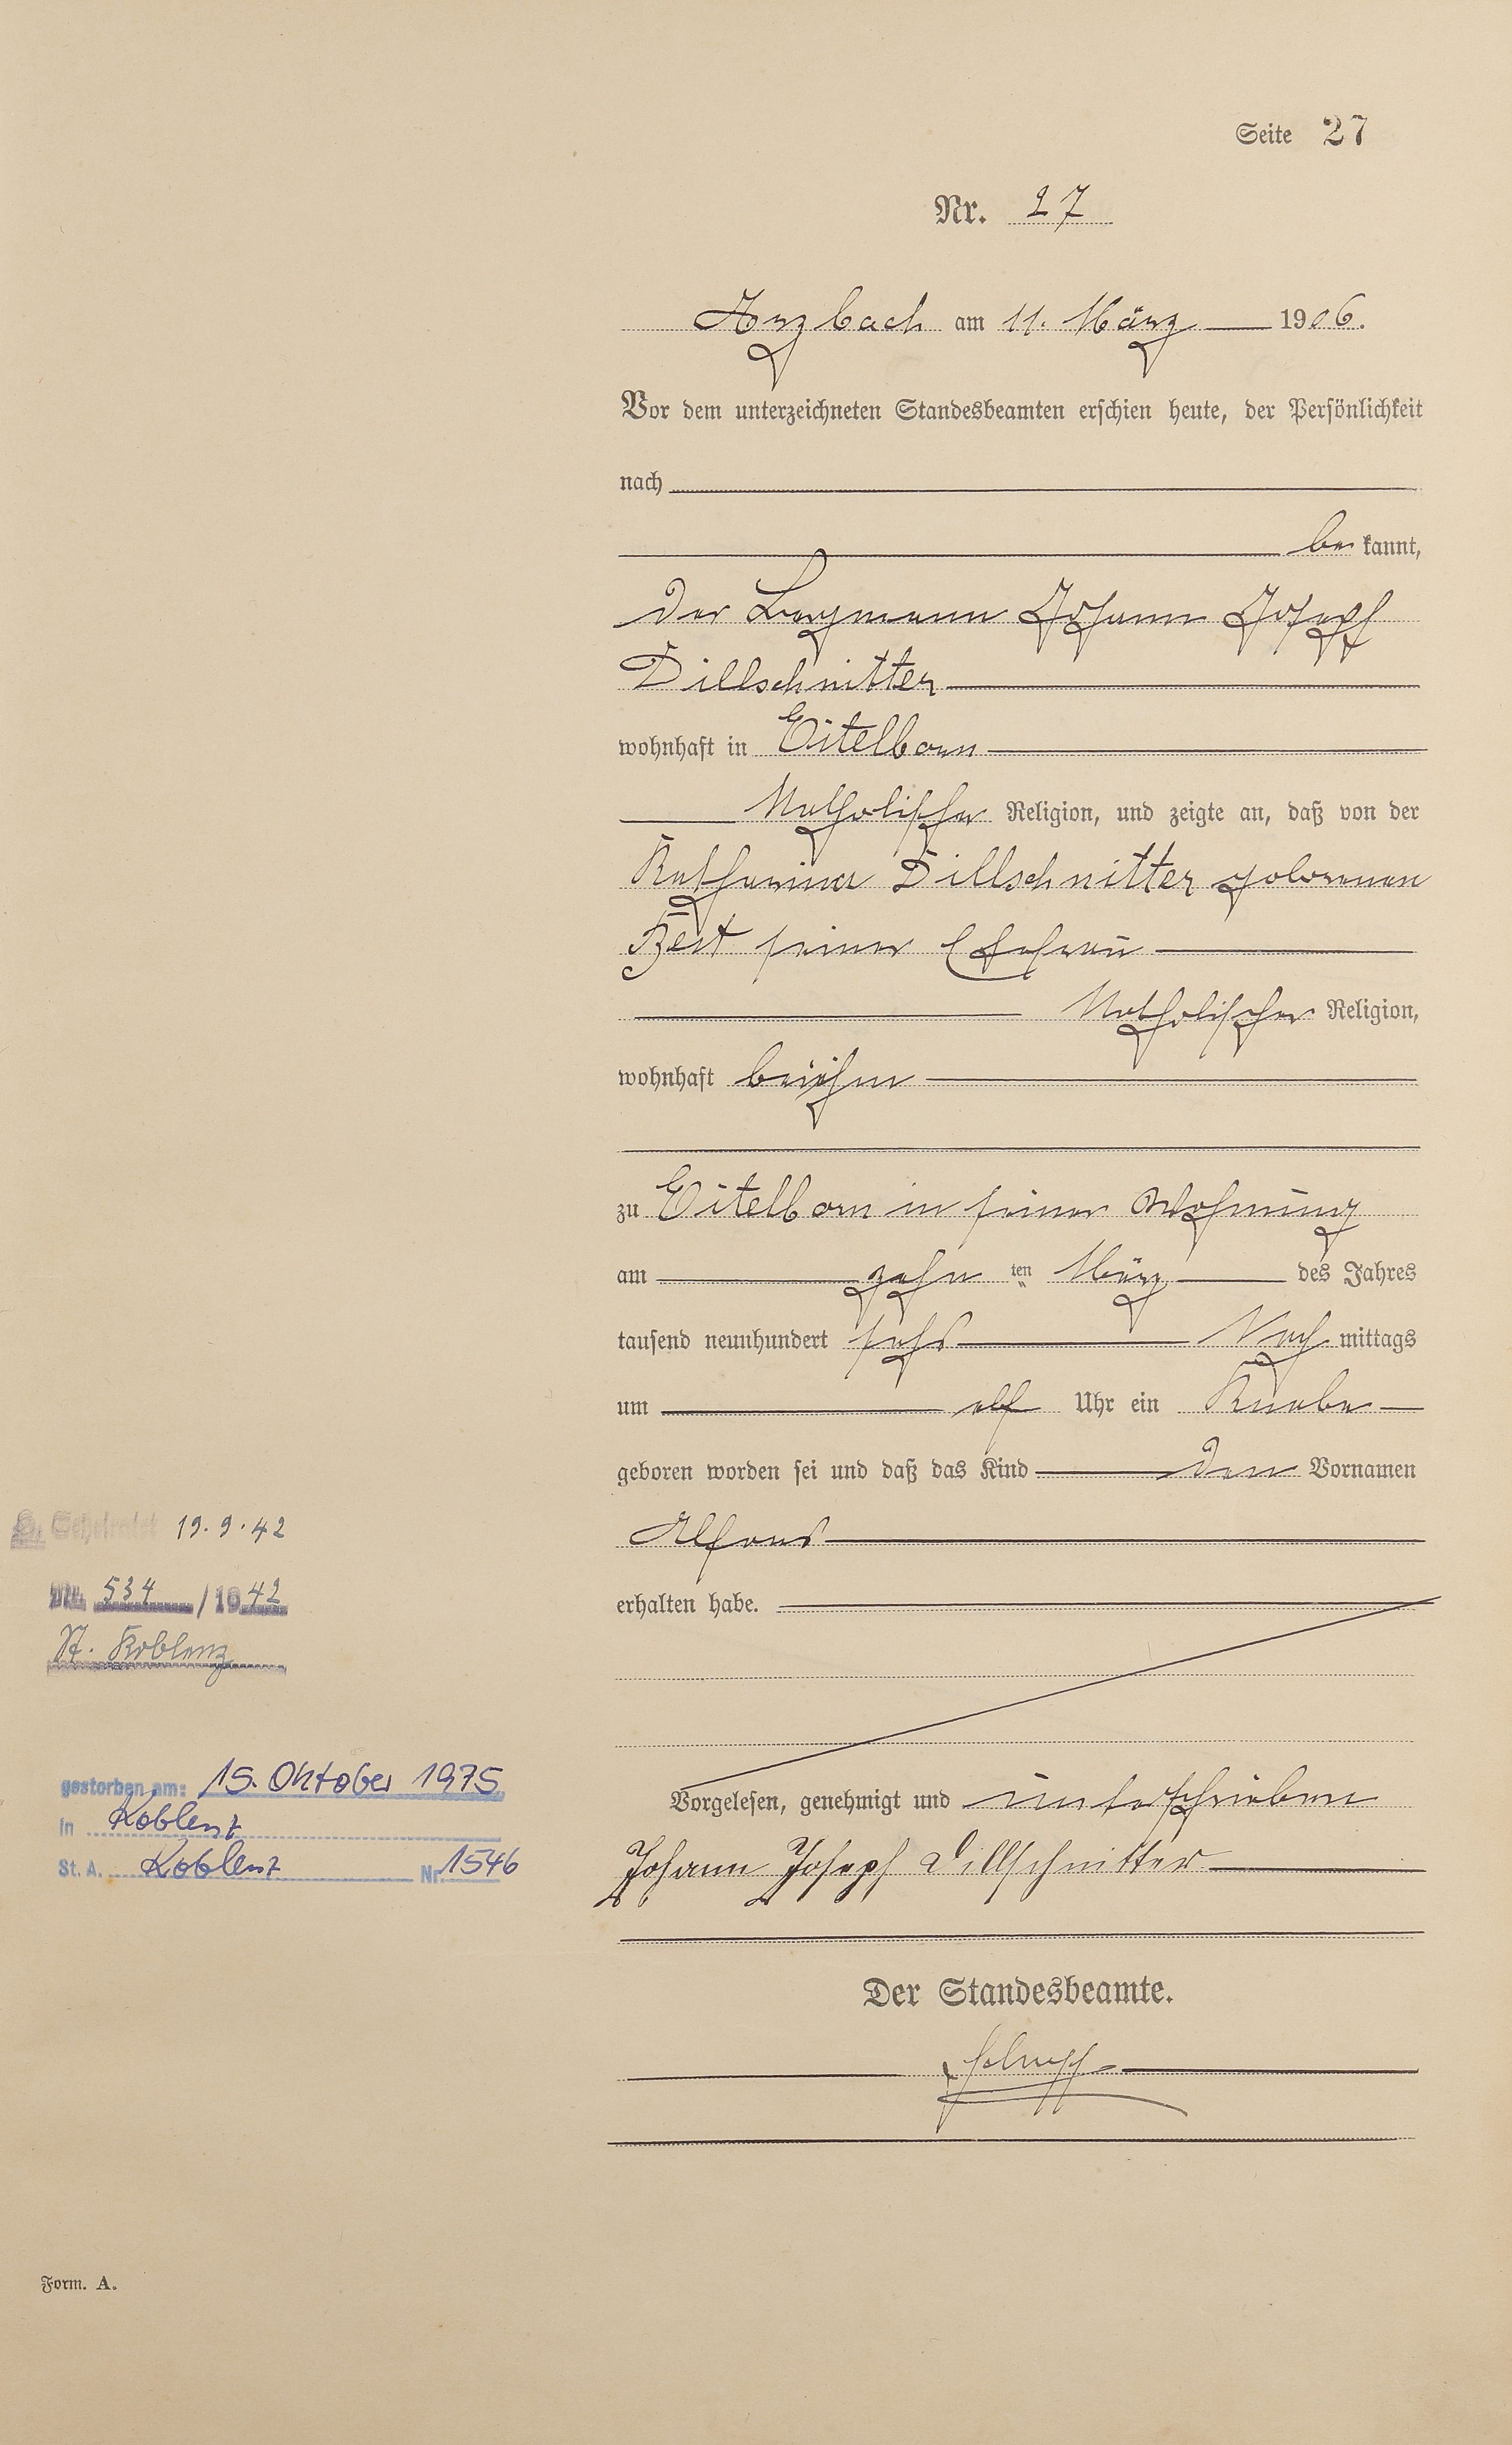 Seite 27
Nr. 27
Arzbach am 11. März 1906.
Vor dem unterzeichneten Standesbeamten erschien heute, der Persönlichkeit
nach
be kannt,
der Bergmann Johann Joseph
Dillschnitter
wohnhaft in Eitelborn
katholischer Religion, und zeigte an, daß von der
Katharina Dillschnitter geborenen
Best seiner Ehefrau
katholischer Religion,
wohnhaft bei ihm
zu Eitelborn in seiner Wohnung
am zehn ten März des Jahres
tausend neunhundert sechs Nach mittags
um elf Uhr ein Knabe
geboren worden sei und daß das Kind den Vornamen
Alfons
erhalten habe.
Vorgelesen, genehmigt und unterschrieben
Johann Joseph Dillschnitter
Der Standesbeamte.
19.9.42
Nr. 534 / 1942
St. Koblenz
gestorben am: 15. Oktober 1975
in Koblenz
St. A. Koblenz Nr. 1546
Form. A.